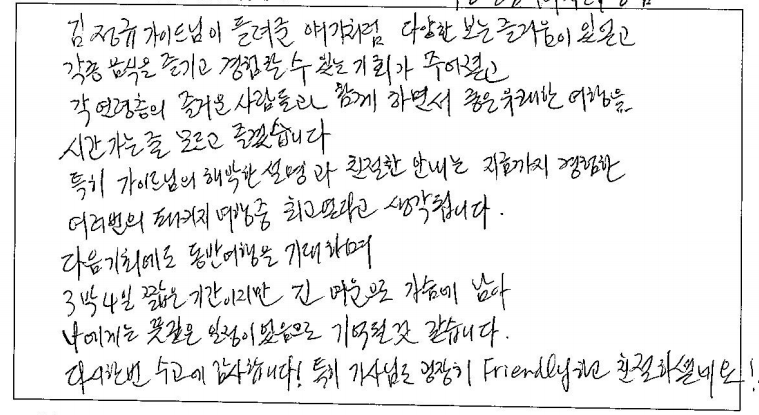 김정규 가이드님이 들려줄 얘기처럼 다양한 보는 즐거움이 있었고
각종 음식을 즐기고 경험할 수 있는 기회가 주어졌고
각 연령층의 즐거운 사람들과 함께 하면서 좋은 유쾌한 여행을
시간 가는 줄 모르고 즐겼습니다
특히 가이드님의 해박한 설명과 친절한 안내는 지금까지 경험한
여러번의 패키지 여행중 최고였다고 생각됩니다.
다음 기회에도 동반여행을 기대하며
3박4일 짧은 기간이지만 긴 여운으로 가슴에 남아
나에게는 꽃같은 일정이었음으로 기억될 것 같습니다.
다시한번 수고에 감사합니다! 특히 기사님도 굉장히 Friendly하고 친절하셨네요!